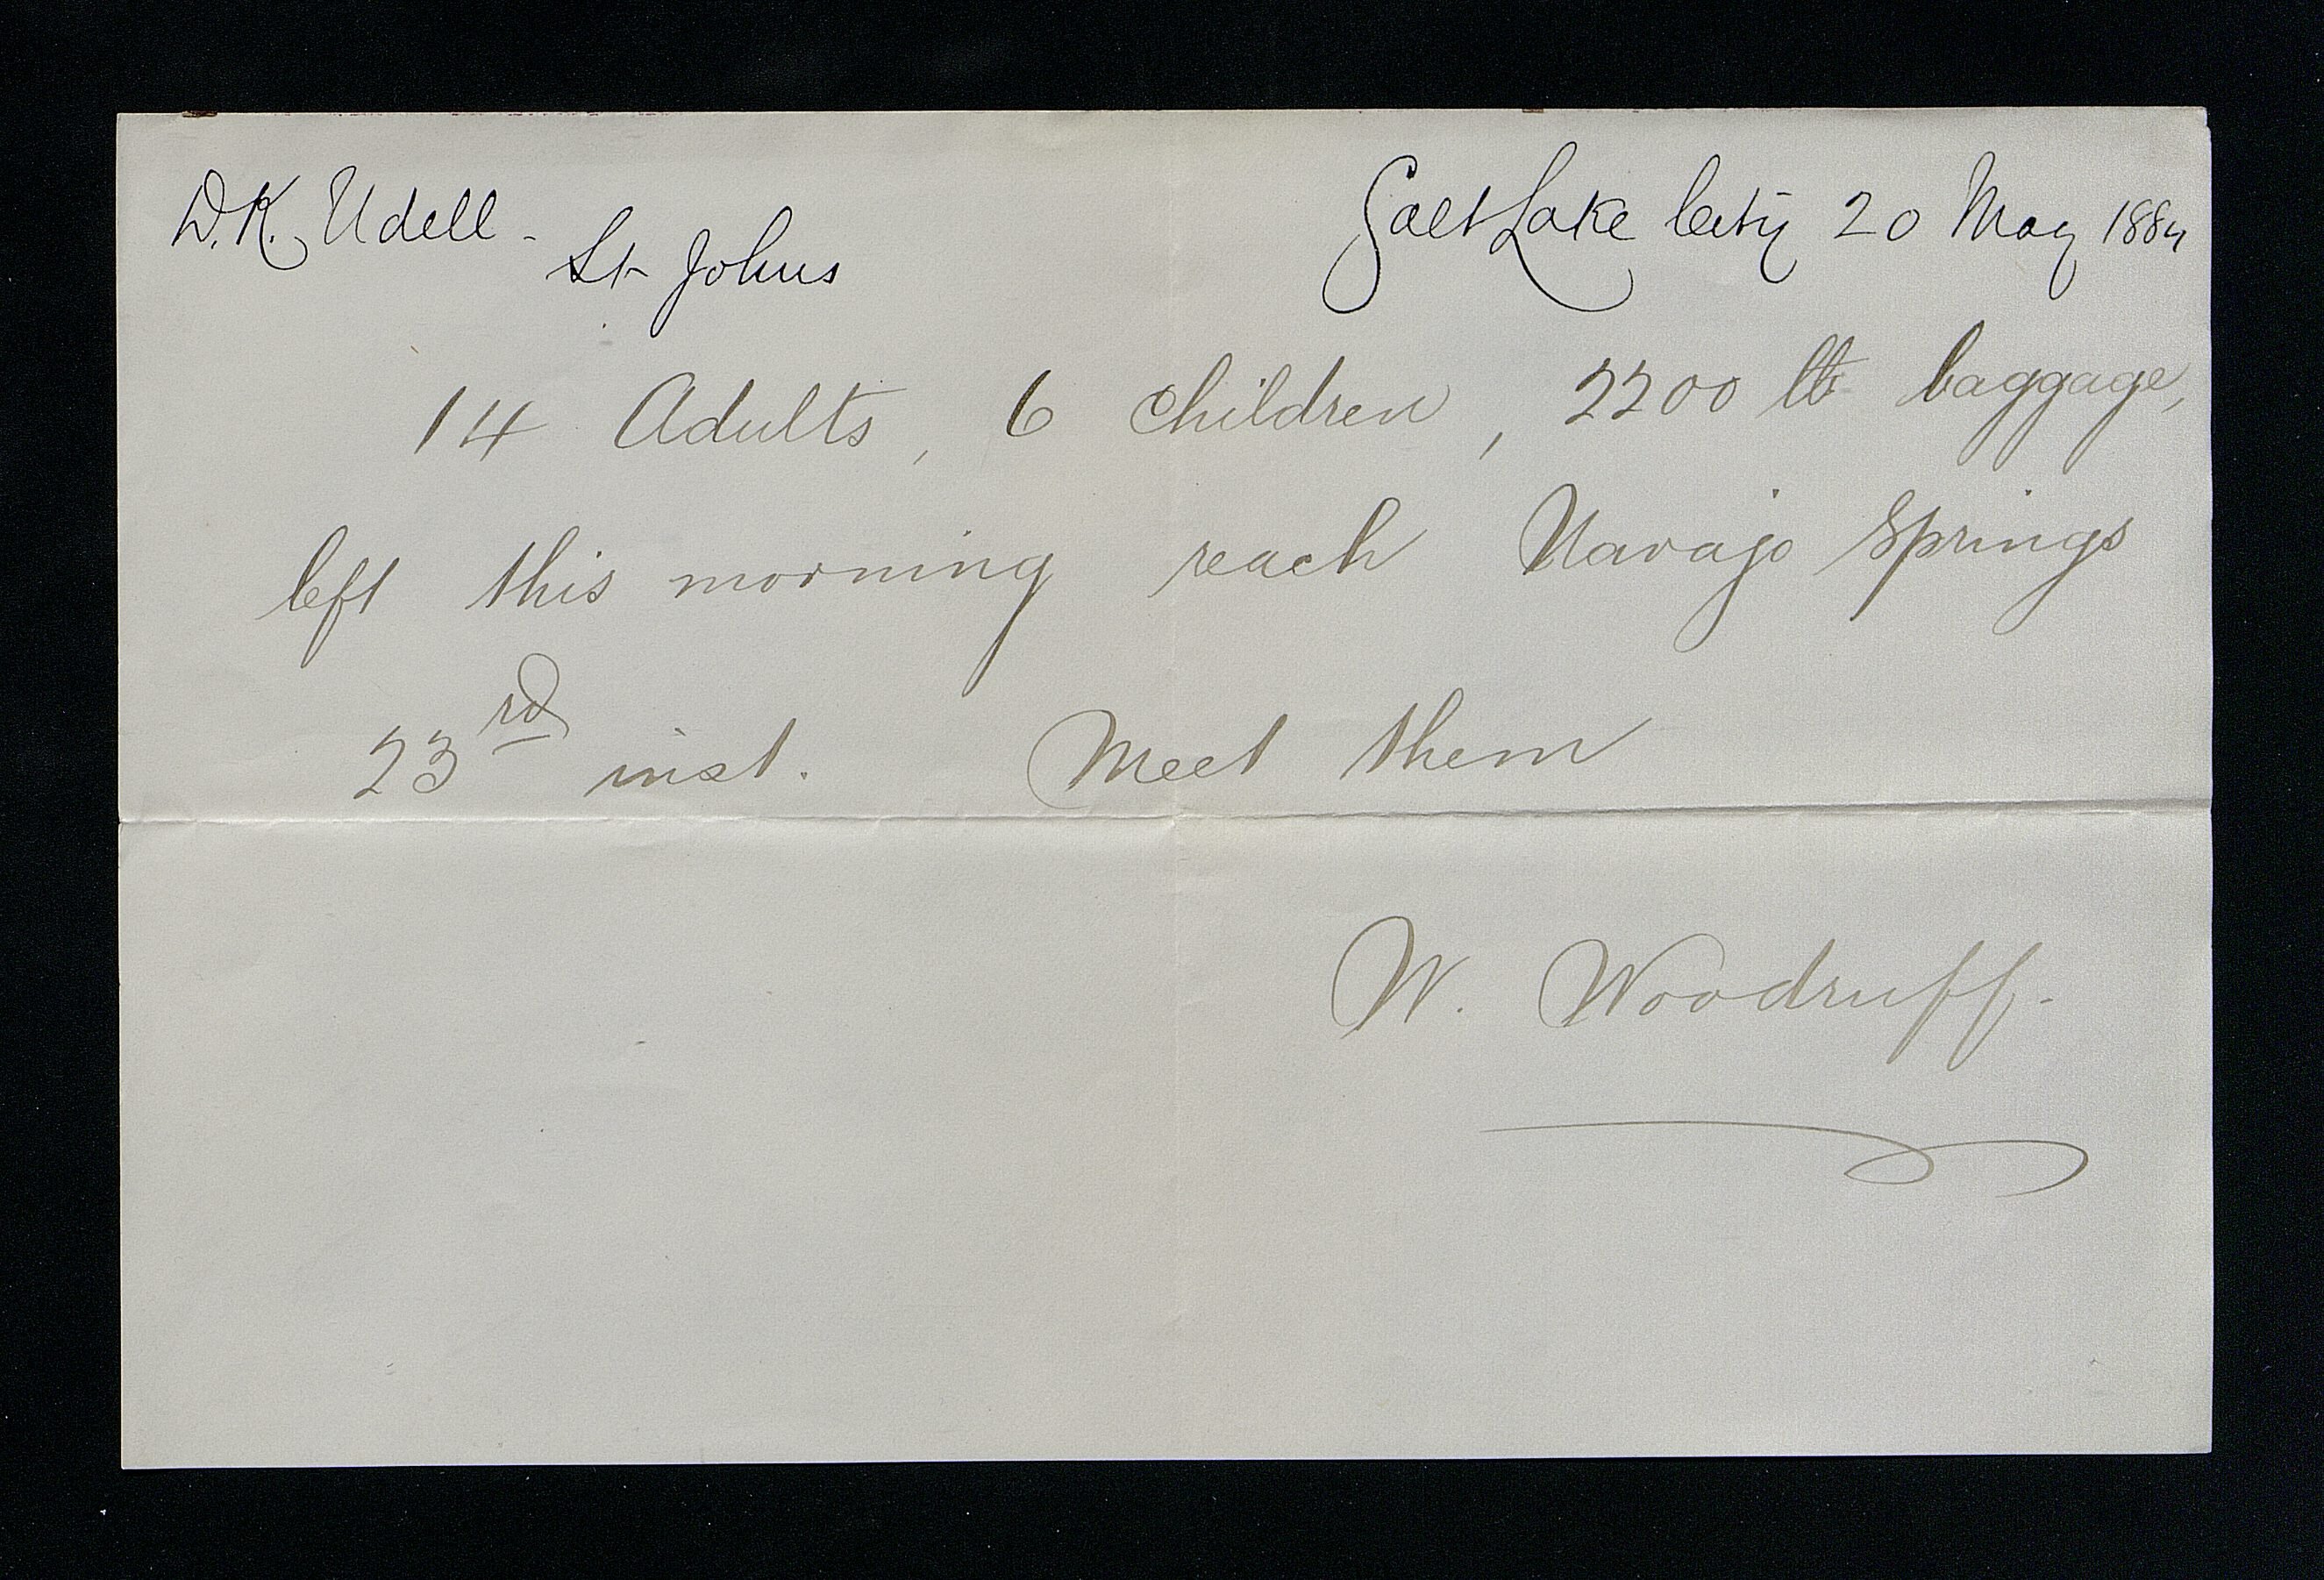 D. K. Udell - Salt Lake City 20 May 1884
St Johns
14 Adults, 6 children, 2200 lb baggage,
left this morning reach Navajo Springs
23rd inst. Meet them
W. Woodruff.